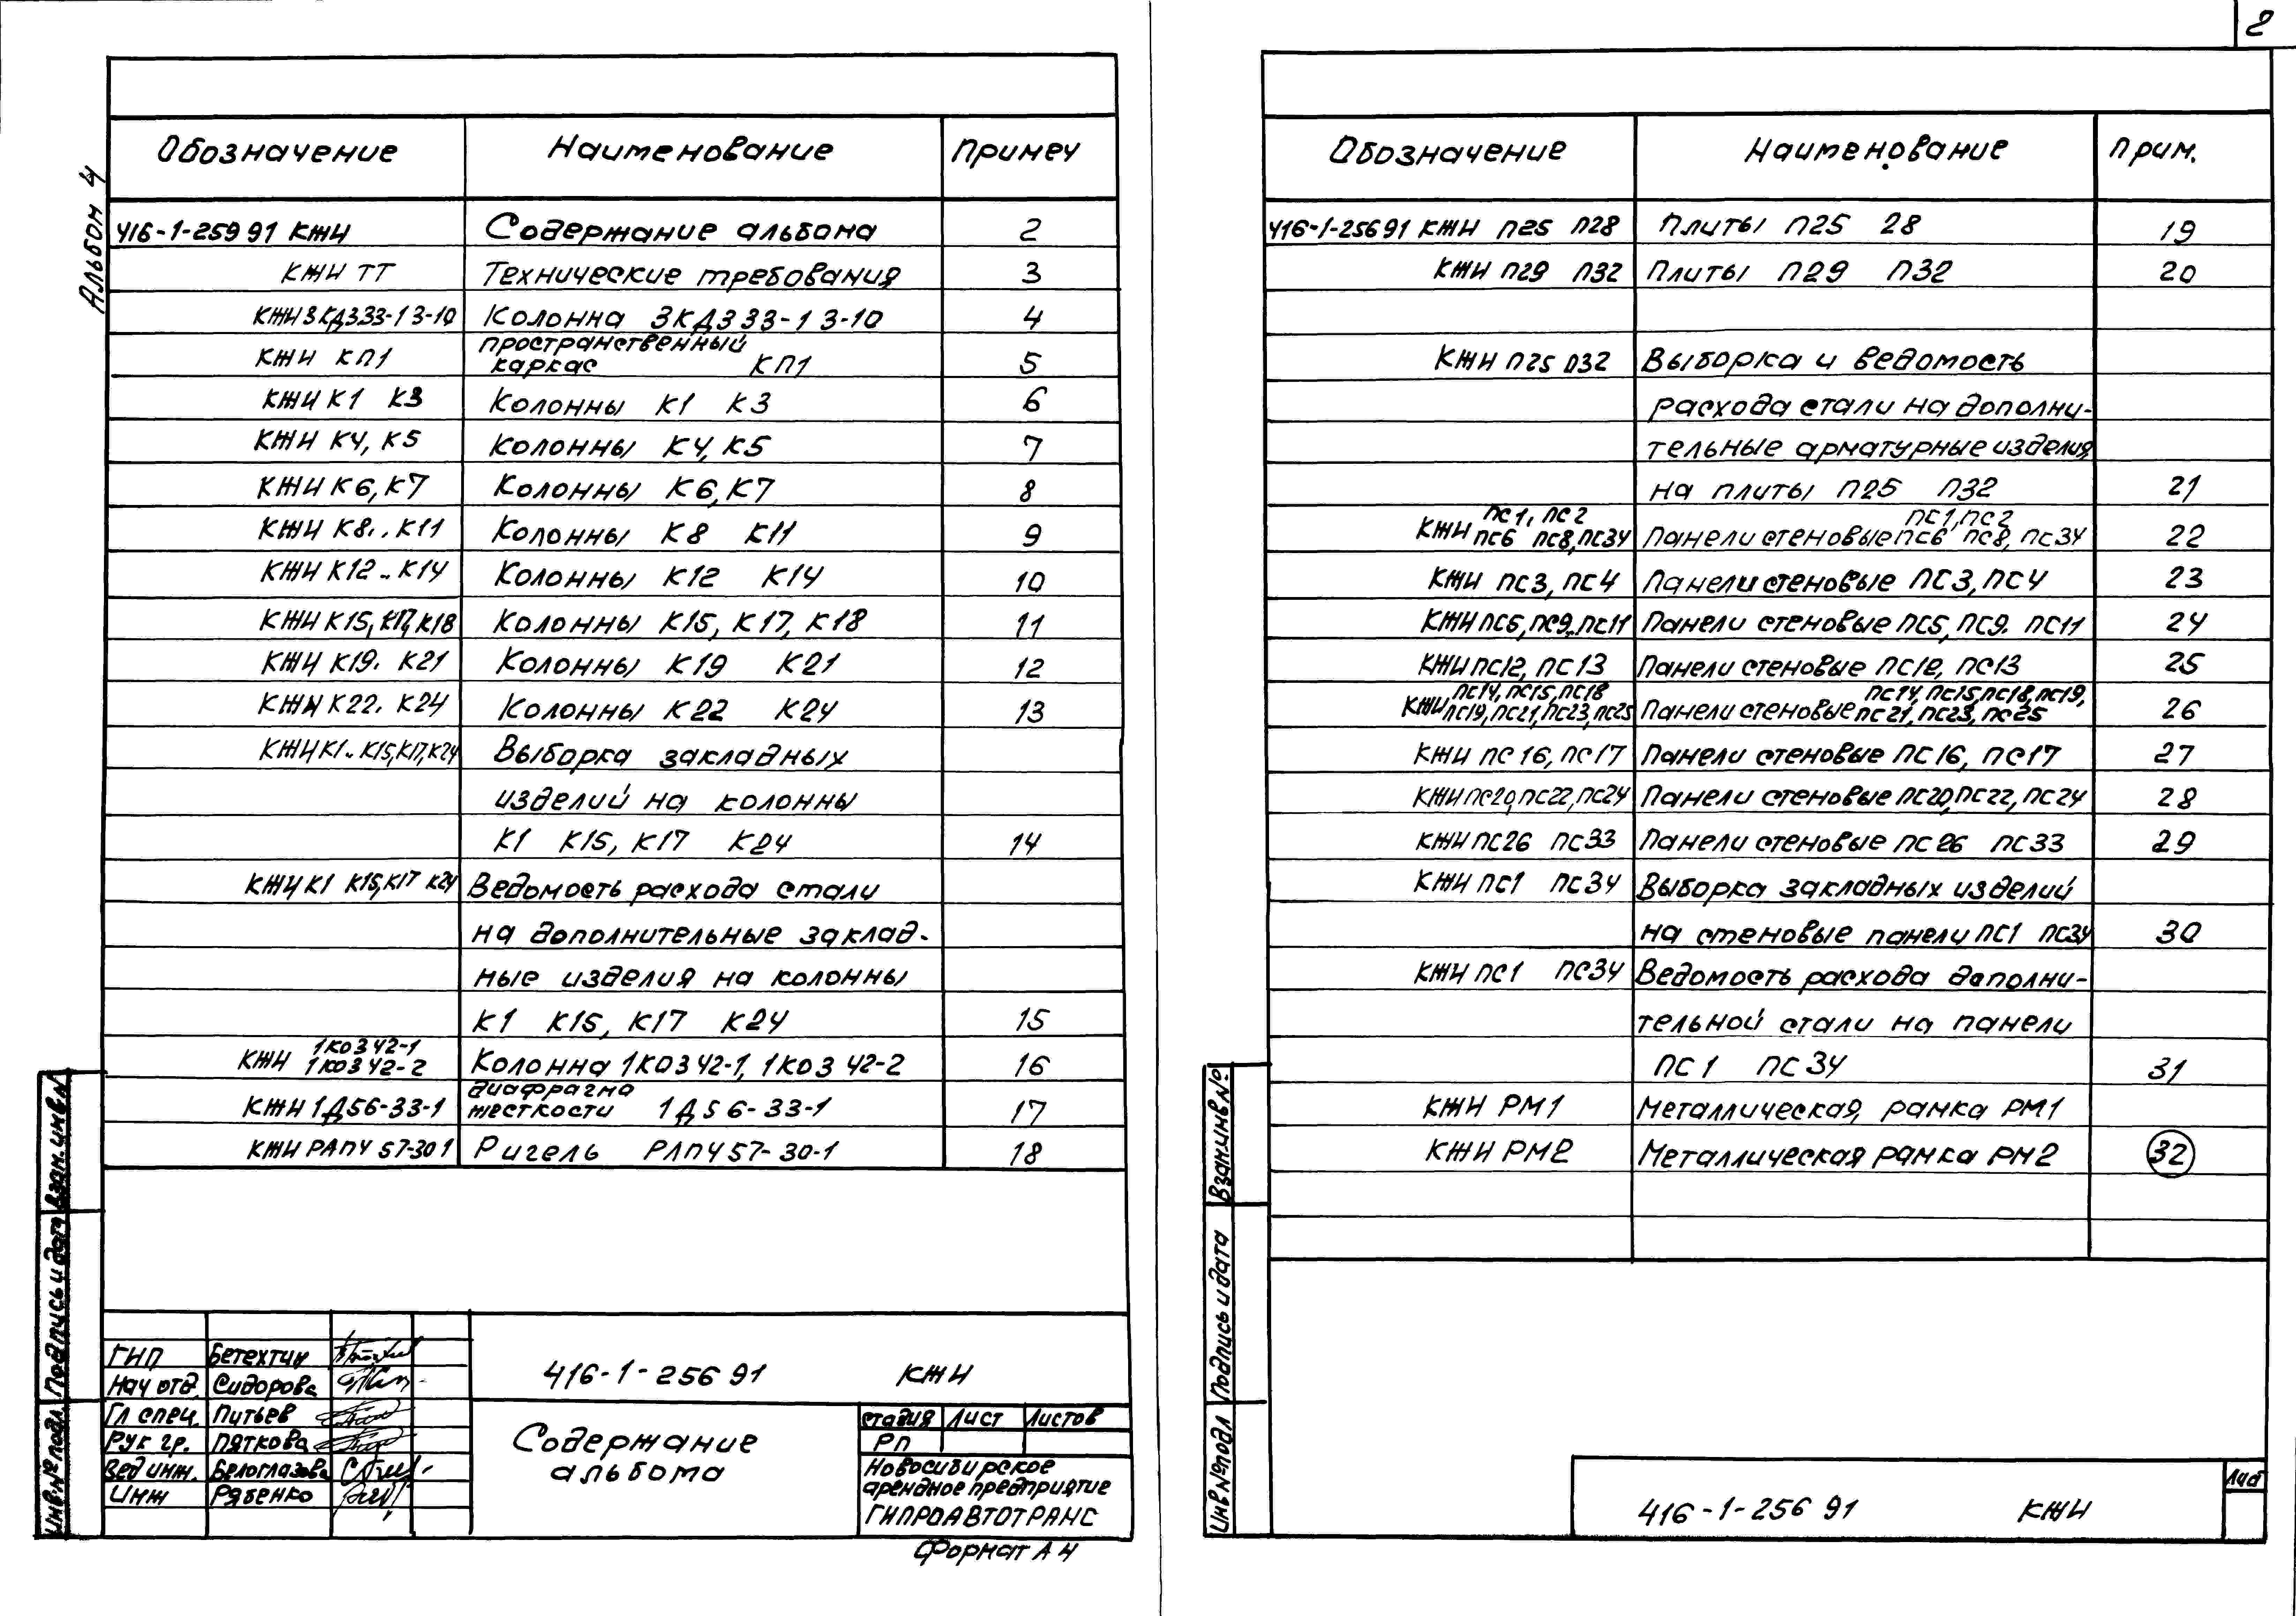 2
Альбом 4
Обозначение Наименование Примеч
416-1-259 91 КЖИ Содержание альбома 2
КЖИ ТТ Технические требования 3
КЖИ 3КД333-1 3-10 Колонна 3КД333-1 3-10 4
КЖИ КП1 пространственный каркас КП1 5
КЖИ К1 К3 Колонны К1 К3 6
КЖИ К4, К5 Колонны К4, К5 7
КЖИ К6, К7 Колонны К6, К7 8
КЖИ К8.. К11 Колонны К8 К11 9
КЖИ К12.. К14 Колонны К12 К14 10
КЖИ К15, К17, К18 Колонны К15, К17, К18 11
КЖИ К19. К21 Колонны К19 К21 12
КЖИ К22. К24 Колонны К22 К24 13
КЖИ К1.. К15, К17, К24 Выборка закладных
изделий на колонны
К1 К15, К17 К24 14
КЖИ К1 К15, К17 К24 Ведомость расхода стали
на дополнительные заклад-
ные изделия на колонны
К1 К15, К17 К24 15
КЖИ 1КО3 42-1 1КО3 42-2 Колонна 1КО3 42-1, 1КО3 42-2 16
КЖИ 1Д56-33-1 диафрагма жесткости 1Д56-33-1 17
КЖИ РЛП4 57-30 1 Ригель РЛП4 57-30-1 18
ГИП Бетехтин
Нач отд. Сидорова
Гл спец. Путьев
Рук гр. Пяткова
Вед инж. Белоглазова
Инж Рябенко
416-1-256 91 КЖИ
Содержание
альбома
стадия Лист Листов
РП
Новосибирское
арендное предприятие
ГИПРОАВТОТРАНС
Формат А4
Инв.№подл. Подпись и дата Взам.инв.№
Обозначение Наименование Прим.
416-1-256 91 КЖИ П25 П28 Плиты П25 28 19
КЖИ П29 П32 Плиты П29 П32 20
КЖИ П25 П32 Выборка и ведомость
расхода стали на дополни-
тельные арматурные изделия
на плиты П25 П32 21
КЖИ ПС1, ПС2 ПС6 ПС8, ПС34 Панели стеновые ПС1, ПС2 ПС6 ПС8, ПС34 22
КЖИ ПС3, ПС4 Панели стеновые ПС3, ПС4 23
КЖИ ПС5, ПС9..ПС11 Панели стеновые ПС5, ПС9. ПС11 24
КЖИ ПС12, ПС13 Панели стеновые ПС12, ПС13 25
КЖИ ПС14, ПС15, ПС18 ПС19, ПС21, ПС23, ПС25 Панели стеновые ПС14, ПС15, ПС18, ПС19, ПС21, ПС23, ПС25 26
КЖИ ПС16, ПС17 Панели стеновые ПС16, ПС17 27
КЖИ ПС20, ПС22, ПС24 Панели стеновые ПС20, ПС22, ПС24 28
КЖИ ПС26 ПС33 Панели стеновые ПС26 ПС33 29
КЖИ ПС1 ПС34 Выборка закладных изделий
на стеновые панели ПС1 ПС34 30
КЖИ ПС1 ПС34 Ведомость расхода дополни-
тельной стали на панели
ПС1 ПС34 31
КЖИ РМ1 Металлическая рамка РМ1
КЖИ РМ2 Металлическая рамка РМ2 32
Инв №подл Подпись и дата Взам.инв №
416-1-256 91 КЖИ
Лист